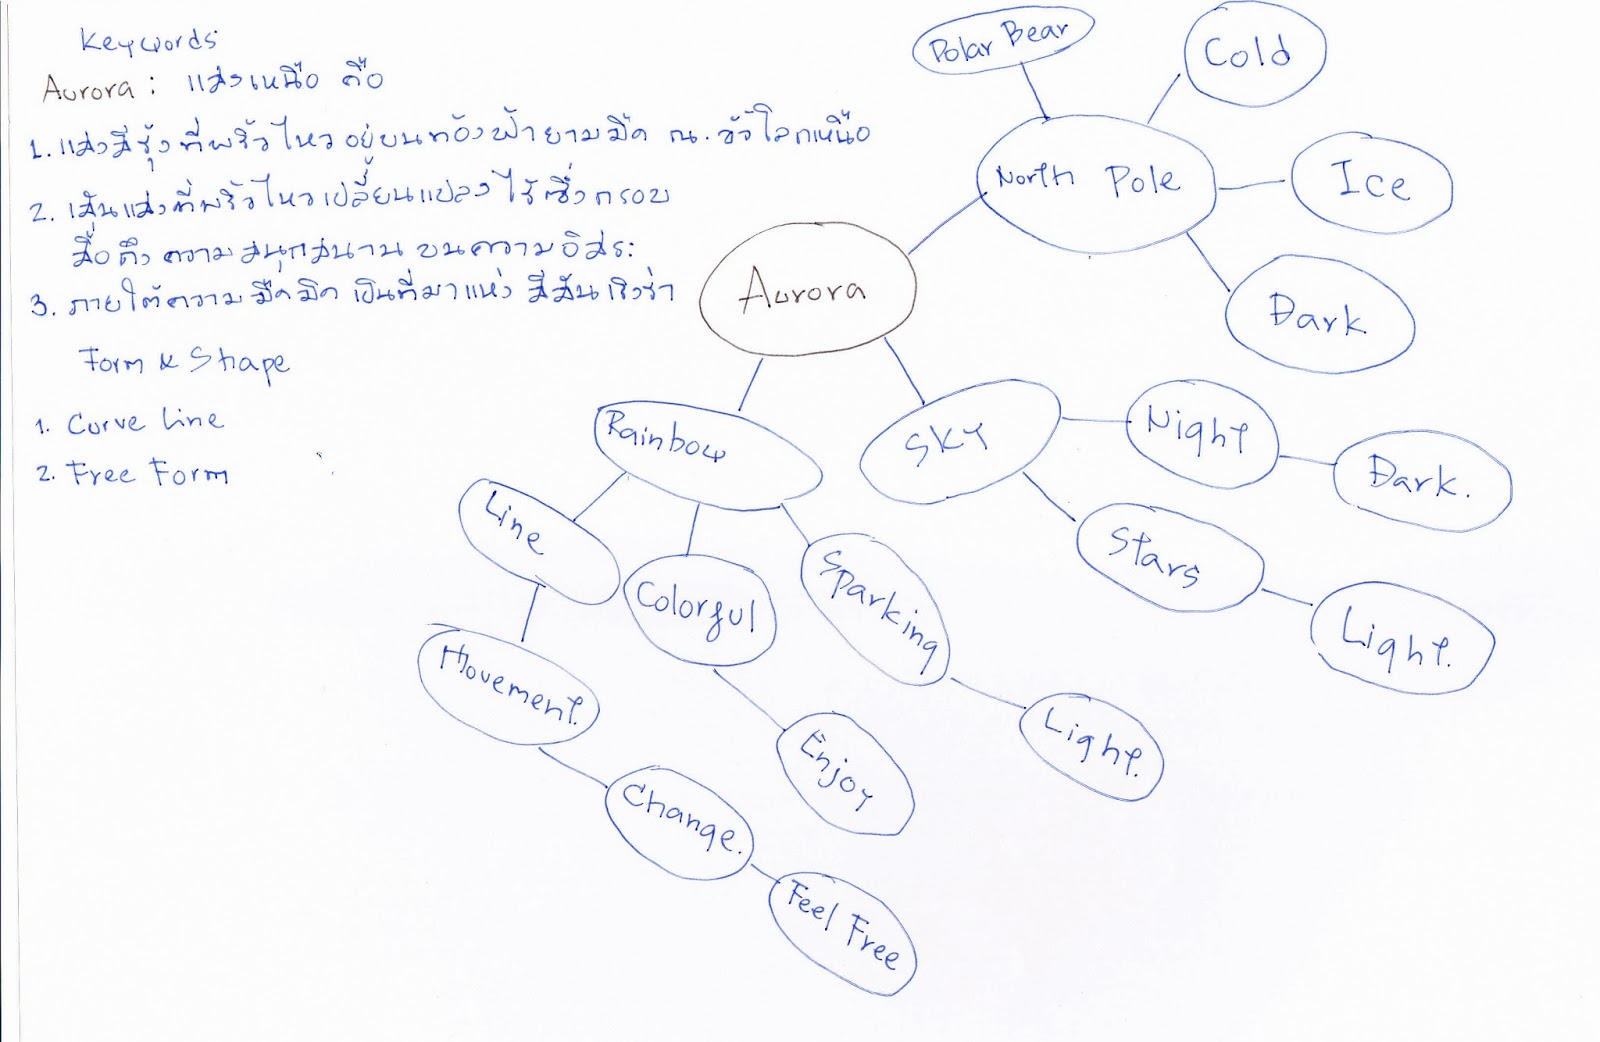 Keywords
Aurora : แสงเหนือ คือ
1. แสงสีรุ้งที่พริ้วไหวอยู่บนท้องฟ้ายามมืด ณ. ขั้วโลกเหนือ
2. เส้นแสงที่พริ้วไหวเปลี่ยนแปลงไร้ซึ่งกรอบ
สื่อถึงความสนุกสนาน บนความอิสระ
3. ภายใต้ความมืดมิด เป็นที่มาแห่ง สีสันเริงร่า
Form & Shape
1. Curve Line
2. Free Form
Polar Bear
Cold
North Pole
Ice
Aurora
Dark
Rainbow
SKY
Night
Dark.
Line
Colorful
Sparking
Stars
Light.
Movement.
Enjoy
Light.
Change.
Feel Free